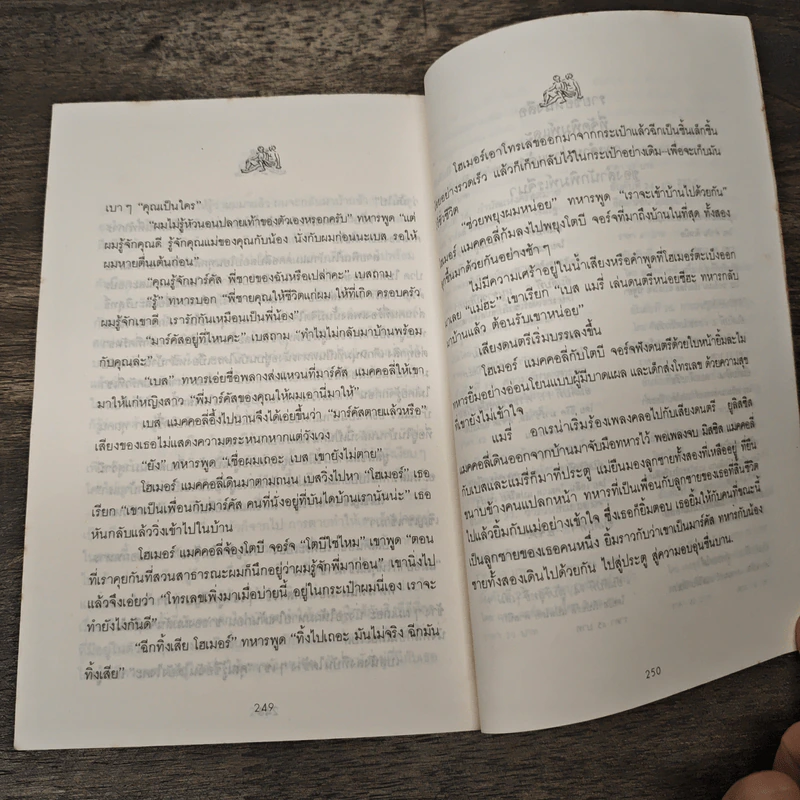 เบา ๆ “คุณเป็นใคร”
“ผมไม่รู้หัวนอนปลายเท้าของตัวเองหรอกครับ” ทหารพูด “แต่
ผมรู้จักคุณดี รู้จักคุณแม่ของคุณกับน้อง นังกับผมก่อนนะเบส รอให้
ผมหายตื่นเต้นก่อน”
“คุณรู้จักมาร์คัส พี่ชายของฉันหรือเปล่าคะ” เบสถาม
“รู้” ทหารบอก “พี่ชายคุณให้ชีวิตแก่ผม ให้ที่เกิด ครอบครัว
ผมรู้จักเขาดี เรารักกันเหมือนเป็นพี่น้อง”
“มาร์คัสอยู่ที่ไหนคะ” เบสถาม “ทำไมไม่กลับมาบ้านพร้อม
กับคุณล่ะ”
“เบส” ทหารเอ่ยชื่อพลางส่งแหวนที่มาร์คัส แมคคอลีให้เขา
มาให้แก่หญิงสาว “พี่มาร์คัสของคุณให้ผมเอานี่มาให้”
เบส แมคคอลีอึ้งไปนานจึงได้เอ่ยขึ้นว่า “มาร์คัสตายแล้วหรือ”
เสียงของเธอไม่แสดงความตระหนกหากแต่วังเวง
“ยัง” ทหารพูด “เชื่อผมเถอะ เบส เขายังไม่ตาย”
โฮเมอร์ แมคคอลีเดินมาตามถนน เบสวิ่งไปหา “โฮเมอร์” เธอ
เรียก “เขาเป็นเพื่อนกับมาร์คัส คนที่นั่งอยู่ที่บันไดบ้านเรานั่นน่ะ” เธอ
หันกลับแล้ววิ่งเข้าไปในบ้าน
โฮเมอร์ แมคคอลีจ้องโตบี จอร์จ “โตบีใช่ไหม” เขาพูด “ตอน
ที่เราคุยกันที่สวนสาธารณะผมก็นึกอยู่ว่าผมรู้จักพี่มาก่อน” เขานิ่งไป
แล้วจึงเอ่ยว่า “โทรเลขเพิ่งมาเมื่อบ่ายนี้ อยู่ในกระเป๋าผมนี่เอง เราจะ
ทำยังไงกันดี”
“ฉีกทิ้งเสีย โฮเมอร์” ทหารพูด “ทิ้งไปเถอะ มันไม่จริง ฉีกมัน
ทิ้งเสีย”
249
โฮเมอร์เอาโทรเลขออกมาจากกระเป๋าแล้วฉีกเป็นชิ้นเล็กชิ้น
น้อยอย่างรวดเร็ว แล้วก็เก็บกลับไว้ในกระเป๋าอย่างเดิม–เพื่อจะเก็บมัน
ชีวิต
“ช่วยพยุงผมหน่อย” ทหารพูด “เราจะเข้าบ้านไปด้วยกัน”
โฮเมอร์ แมคคอลีก้มลงไปพยุงโตบี จอร์จที่มาถึงบ้านในที่สุด ทั้งสอง
ขึ้นมาด้วยกันอย่างช้า ๆ
ไม่มีความเศร้าอยู่ในน้ำเสียงหรือคำพูดที่โฮเมอร์ตะเบ็งออก
มาเลย “แม่ฮะ” เขาเรียก “เบส แมรี่ เล่นดนตรีหน่อยซีฮะ ทหารกลับ
มาบ้านแล้ว ต้อนรับเขาหน่อย”
เสียงดนตรีเริ่มบรรเลงขึ้น
โฮเมอร์ แมคคอลีกับโตบี จอร์จฟังดนตรีด้วยใบหน้ายิ้มละไม
ทหารยิ้มอย่างอ่อนโยนแบบผู้มีบาดแผล และเด็กส่งโทรเลข ด้วยความสุข
ที่เขายังไม่เข้าใจ
แมรี่ อาเรน่าเริ่มร้องเพลงคลอไปกับเสียงดนตรี ยูลิสซิส
แมคคอลีเดินออกจากบ้านมาจับมือทหารไว้ พอเพลงจบ มิสซิส แมคคอลี
กับเบสและแมรี่ก็มาที่ประตู แม่ยืนมองลูกชายทั้งสองที่เหลืออยู่ ที่ยืน
ขนาบข้างคนแปลกหน้า ทหารที่เป็นเพื่อนกับลูกชายของเธอที่สิ้นชีวิต
ไปแล้วยิ้มกับแม่อย่างเข้าใจ ซึ่งเธอก็ยิ้มตอบ เธอยิ้มให้กับคนที่ขณะนี้
เป็นลูกชายของเธอคนหนึ่ง ยิ้มราวกับว่าเขาเป็นมาร์คัส ทหารกับน้อง
ชายทั้งสองเดินไปด้วยกัน ไปสู่ประตู สู่ความอบอุ่นชื่นบาน.
250